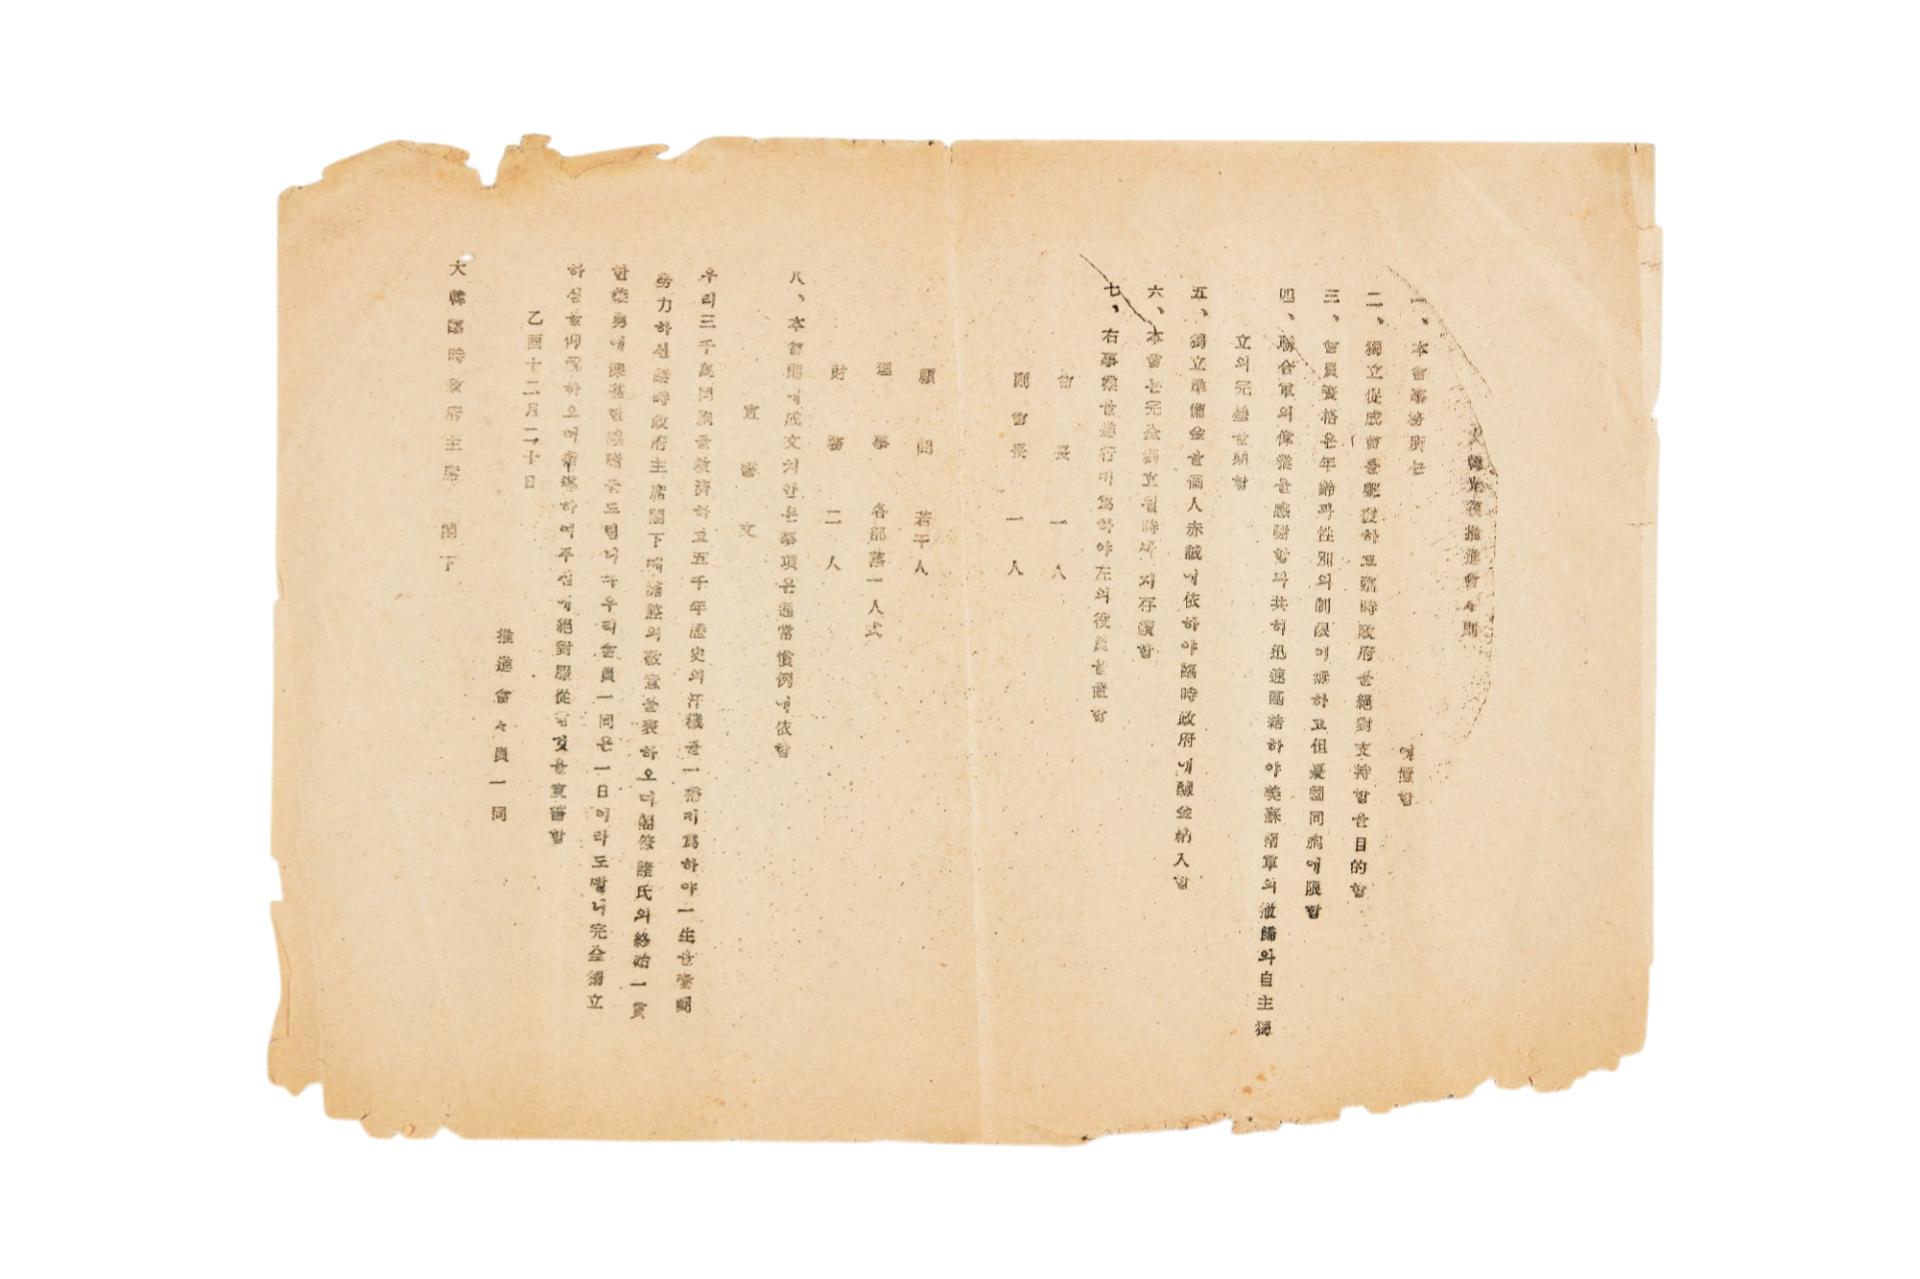 大韓光復推進會々則
一、本會事務所는
에置함
二、獨立促成會를 하고臨時政府를絕對支持함을目的함
三、會員資格은年齡과性別의制限이無하고但憂國同胞에限함
四、聯合軍의偉業을感謝함과共히迅速團結하야美蘇兩軍의撤歸와自主獨
立의完遂를期함
五、獨立準備金을個人赤誠에依하야臨時政府에醵金納入함
六、本會는完全獨立될時까지存續함
七、右事業을進行키爲하야左의役員을置함
會長 一人
副會長 一人
顧問 若干人
理事 各部落一人式
財務 二人
八、本會則에成文치안은事項은通常慣例에依함
宣誓文
우리三千萬同胞를救濟하고五千年歷史의汗穢를 一 키爲하야一生을 鬪
努力하신臨時政府主席閣下 의敬意를表하오며閣僚諸氏의終始一貫
한 勇에深甚한 를드립니다우리會員一同은一日이라도빨니完全獨立
하심을仰 하오며 하여주심에絕對服從할것을宣誓함
乙酉十二月二十日
推進會々員一同
大韓臨時政府主席 閣下